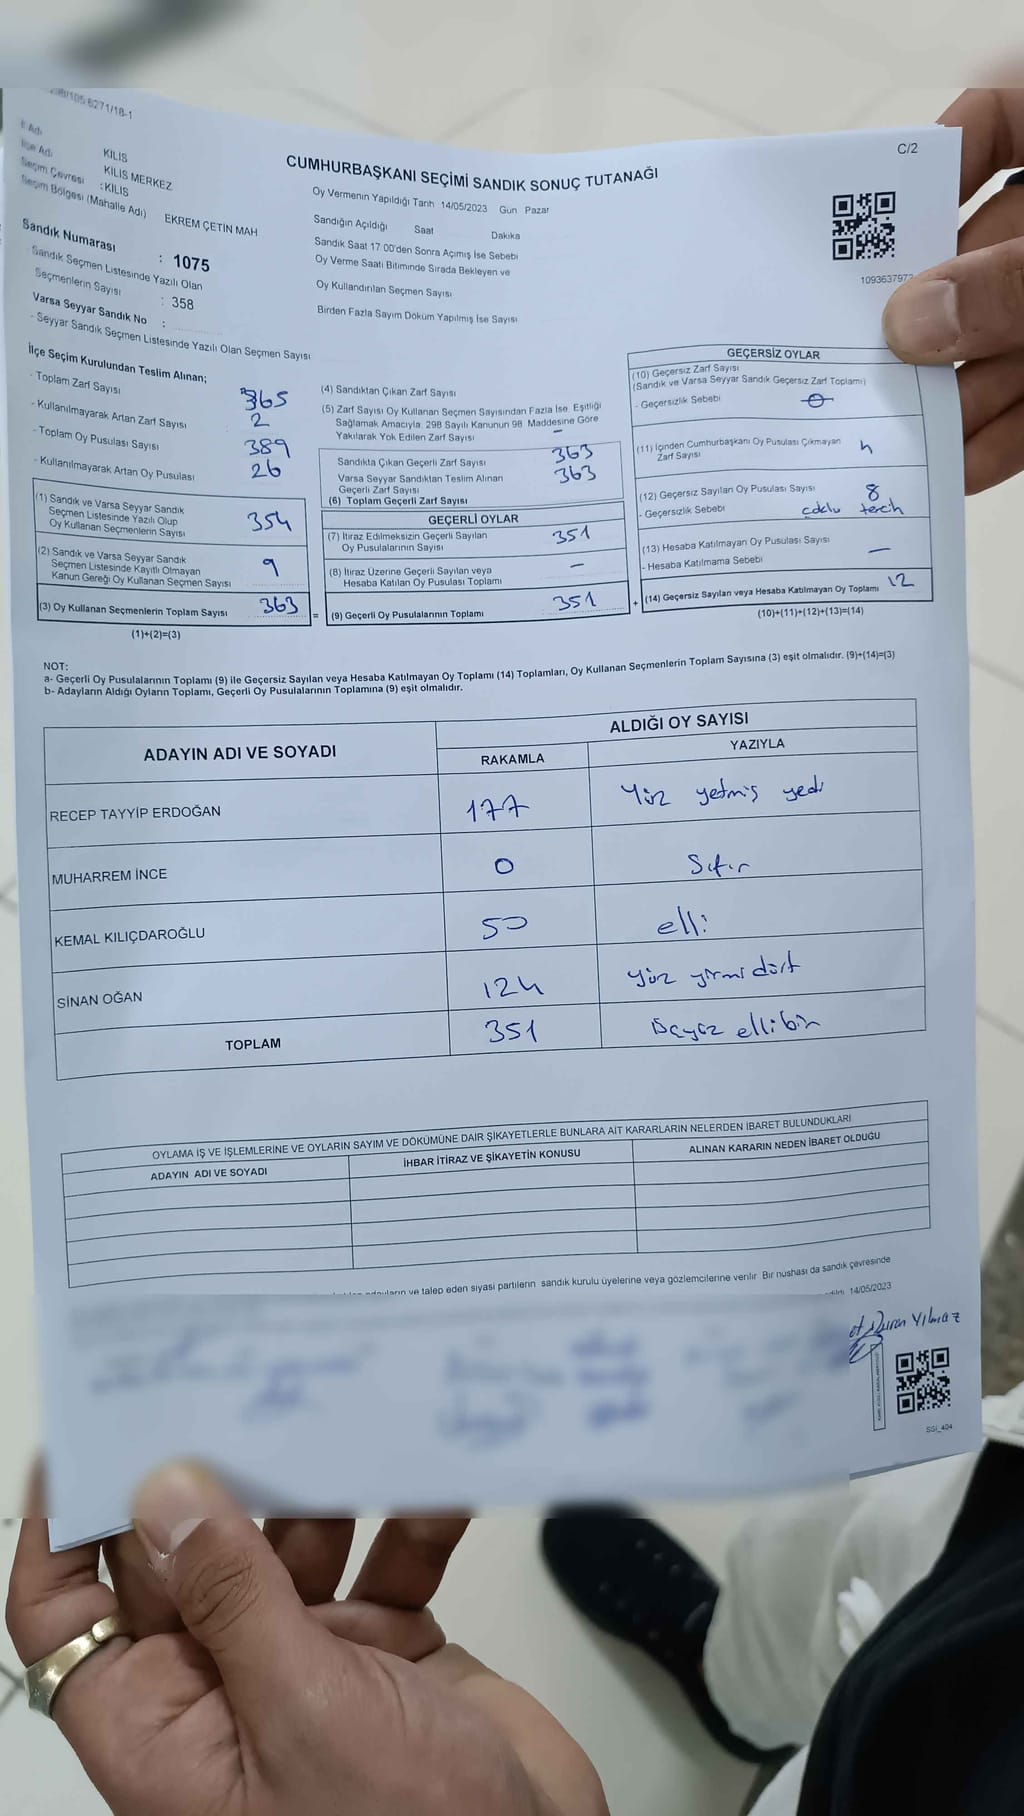 İl Adı KİLİS
İlçe Adı KİLİS MERKEZ
Seçim Çevresi : KİLİS
Seçim Bölgesi (Mahalle Adı) EKREM ÇETİN MAH
Sandık Numarası : 1075
- Sandık Seçmen Listesinde Yazılı Olan
Seçmenlerin Sayısı : 358
Varsa Seyyar Sandık No :
- Seyyar Sandık Seçmen Listesinde Yazılı Olan Seçmen Sayısı
C/2
CUMHURBAŞKANI SEÇİMİ SANDIK SONUÇ TUTANAĞI
Oy Vermenin Yapıldığı Tarih 14/05/2023 Gün Pazar
Sandığın Açıldığı Saat Dakika
Sandık Saat 17 00'den Sonra Açılmış İse Sebebi
Oy Verme Saati Bitiminde Sırada Bekleyen ve
Oy Kullandırılan Seçmen Sayısı
Birden Fazla Sayım Döküm Yapılmış İse Sayısı
İlçe Seçim Kurulundan Teslim Alınan;
- Toplam Zarf Sayısı 365
- Kullanılmayarak Artan Zarf Sayısı 2
- Toplam Oy Pusulası Sayısı 389
- Kullanılmayarak Artan Oy Pusulası 26
(1) Sandık ve Varsa Seyyar Sandık
Seçmen Listesinde Yazılı Olup
Oy Kullanan Seçmenlerin Sayısı 354
(2) Sandık ve Varsa Seyyar Sandık
Seçmen Listesinde Kayıtlı Olmayan
Kanun Gereği Oy Kullanan Seçmen Sayısı 9
(3) Oy Kullanan Seçmenlerin Toplam Sayısı 363 =
(1)+(2)=(3)
(4) Sandıktan Çıkan Zarf Sayısı
(5) Zarf Sayısı Oy Kullanan Seçmen Sayısından Fazla İse, Eşitliği
Sağlamak Amacıyla, 298 Sayılı Kanunun 98 Maddesine Göre
Yakılarak Yok Edilen Zarf Sayısı –
Sandıkta Çıkan Geçerli Zarf Sayısı 363
Varsa Seyyar Sandıktan Teslim Alınan
Geçerli Zarf Sayısı 363
(6) Toplam Geçerli Zarf Sayısı
GEÇERLİ OYLAR
(7) İtiraz Edilmeksizin Geçerli Sayılan
Oy Pusulalarının Sayısı 351
(8) İtiraz Üzerine Geçerli Sayılan veya
Hesaba Katılan Oy Pusulası Toplamı –
(9) Geçerli Oy Pusulalarının Toplamı 351 +
GEÇERSİZ OYLAR
(10) Geçersiz Zarf Sayısı
(Sandık ve Varsa Seyyar Sandık Geçersiz Zarf Toplamı)
- Geçersizlik Sebebi
(11) İçinden Cumhurbaşkanı Oy Pusulası Çıkmayan
Zarf Sayısı 4
(12) Geçersiz Sayılan Oy Pusulası Sayısı 8
- Geçersizlik Sebebi çoklu tercih
(13) Hesaba Katılmayan Oy Pusulası Sayısı
- Hesaba Katılmama Sebebi –
(14) Geçersiz Sayılan veya Hesaba Katılmayan Oy Toplamı 12
(10)+(11)+(12)+(13)=(14)
NOT:
a- Geçerli Oy Pusulalarının Toplamı (9) ile Geçersiz Sayılan veya Hesaba Katılmayan Oy Toplamı (14) Toplamları, Oy Kullanan Seçmenlerin Toplam Sayısına (3) eşit olmalıdır. (9)+(14)=(3)
b- Adayların Aldığı Oyların Toplamı, Geçerli Oy Pusulalarının Toplamına (9) eşit olmalıdır.
ADAYIN ADI VE SOYADI ALDIĞI OY SAYISI
RAKAMLA YAZIYLA
RECEP TAYYİP ERDOĞAN 177 Yüz yetmiş yedi
MUHARREM İNCE 0 Sıfır
KEMAL KILIÇDAROĞLU 50 elli
SİNAN OĞAN 124 Yüz yirmi dört
TOPLAM 351 üçyüz ellibir
OYLAMA İŞ VE İŞLEMLERİNE VE OYLARIN SAYIM VE DÖKÜMÜNE DAİR ŞİKAYETLERLE BUNLARA AİT KARARLARIN NELERDEN İBARET BULUNDUKLARI
ADAYIN ADI VE SOYADI İHBAR İTİRAZ VE ŞİKAYETİN KONUSU ALINAN KARARIN NEDEN İBARET OLDUĞU
ve talep eden siyasi partilerin sandık kurulu üyelerine veya gözlemcilerine verilir Bir nüshası da sandık çevresinde
14/05/2023
Yılmaz
SGI_404